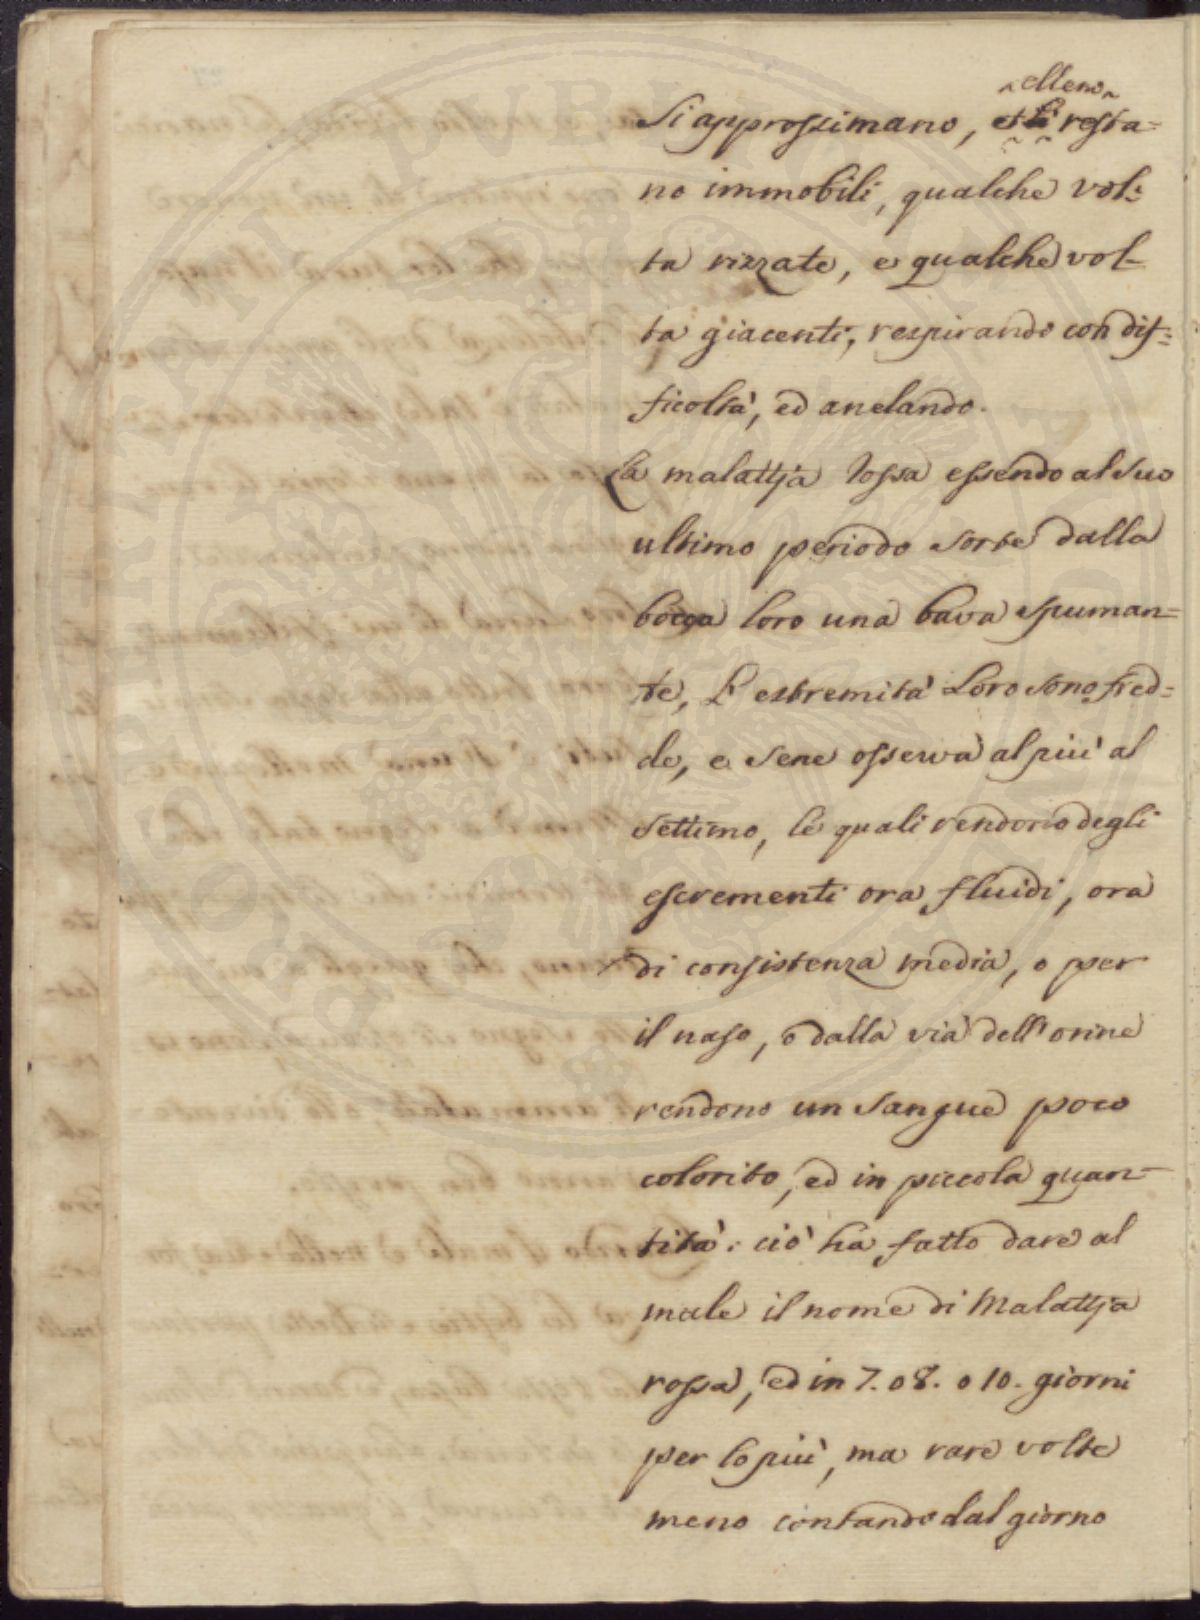 elleno
Si approssimano, resta=
no immobili, qualche vol=
ta rizzate, e qualche vol-
ta giacenti, respirando con dif=
ficoltà, ed anelando.
La malattja rossa essendo al suo
ultimo periodo sorte dalla
bocca loro una bava spuman=
te, l'estremità Loro sono fred=
de, e sene osserva al più al
settimo, le quali rendono degli
escrementi ora fluidi, ora
di consistenza media, o per
il naso, o dalla via dell'orine
rendono un sangue poco
colorito, ed in piccola quan-
tità: ciò ha fatto dare al
male il nome di Malattja
rossa, ed in 7. o 8. o 10. giorni
per lo più, ma rare volte
meno contando dal giorno